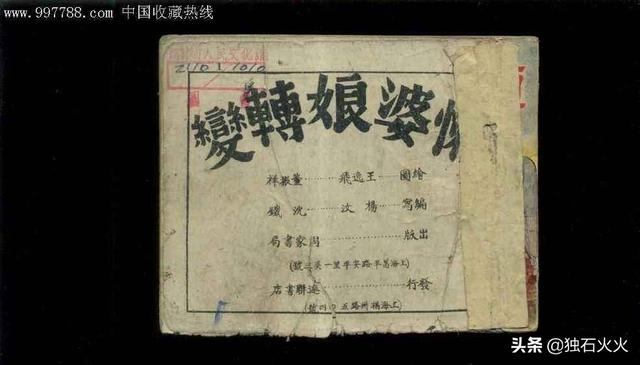 www.997788.com 中国收藏热线
人民文化館
婆娘轉變
繪圖……王逸飛……董振祥
編寫……楊汶……沈鐵
出版……周家書局
(上海昌平路安平里一弄三號)
發行……連聯書店
(上海福州路五 四號)
头条 @独石火火